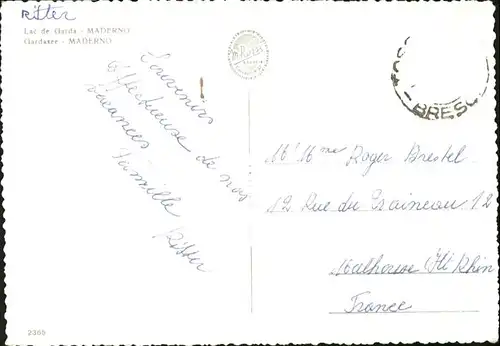 Ritter
Lac de Garda - MADERNO
Gardasee - MADERNO
Souvenirs
affectueuse de nos
vacances
Famille Ritter
2365
BRESC
M! Mme Roger Brestel
12 Rue du
Malhouse Ht Rhin
France